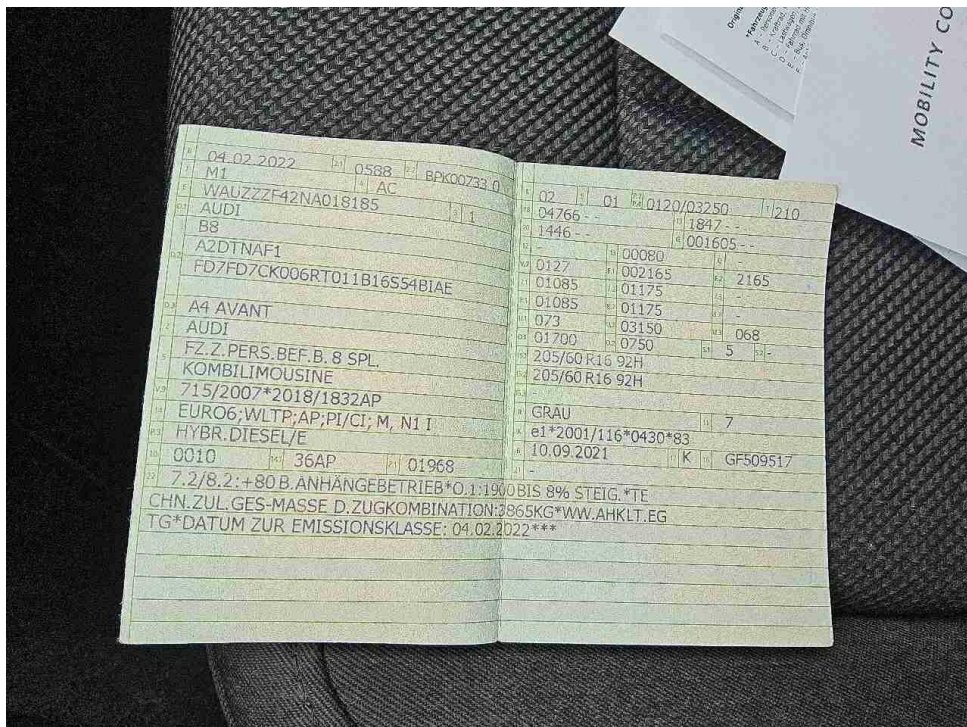 MOBILITY CO
04.02.2022 0588 BPK00733 0
M1 AC
WAUZZZF42NA018185 1
AUDI
B8
A2DTNAF1
FD7FD7CK006RT011B16S54BIAE
A4 AVANT
AUDI
FZ.Z.PERS.BEF.B. 8 SPL.
KOMBILIMOUSINE
715/2007*2018/1832AP
EURO6;WLTP;AP;PI/CI; M, N1 I
HYBR.DIESEL/E
0010 36AP 01968
02 01 0120/03250 210
04766 - - 1847 - -
1446 - - 001605 - -
- 00080 -
0127 002165 2165
01085 01175 -
01085 01175 -
073 03150 068
01700 0750 5 -
205/60 R16 92H
205/60 R16 92H
-
GRAU 7
e1*2001/116*0430*83
10.09.2021 K GF509517
-
7.2/8.2:+80 B.ANHÄNGEBETRIEB*O.1:1900 BIS 8% STEIG.*TE
CHN.ZUL.GES-MASSE D.ZUGKOMBINATION:3865KG*WW.AHKLT.EG
TG*DATUM ZUR EMISSIONSKLASSE: 04.02.2022***